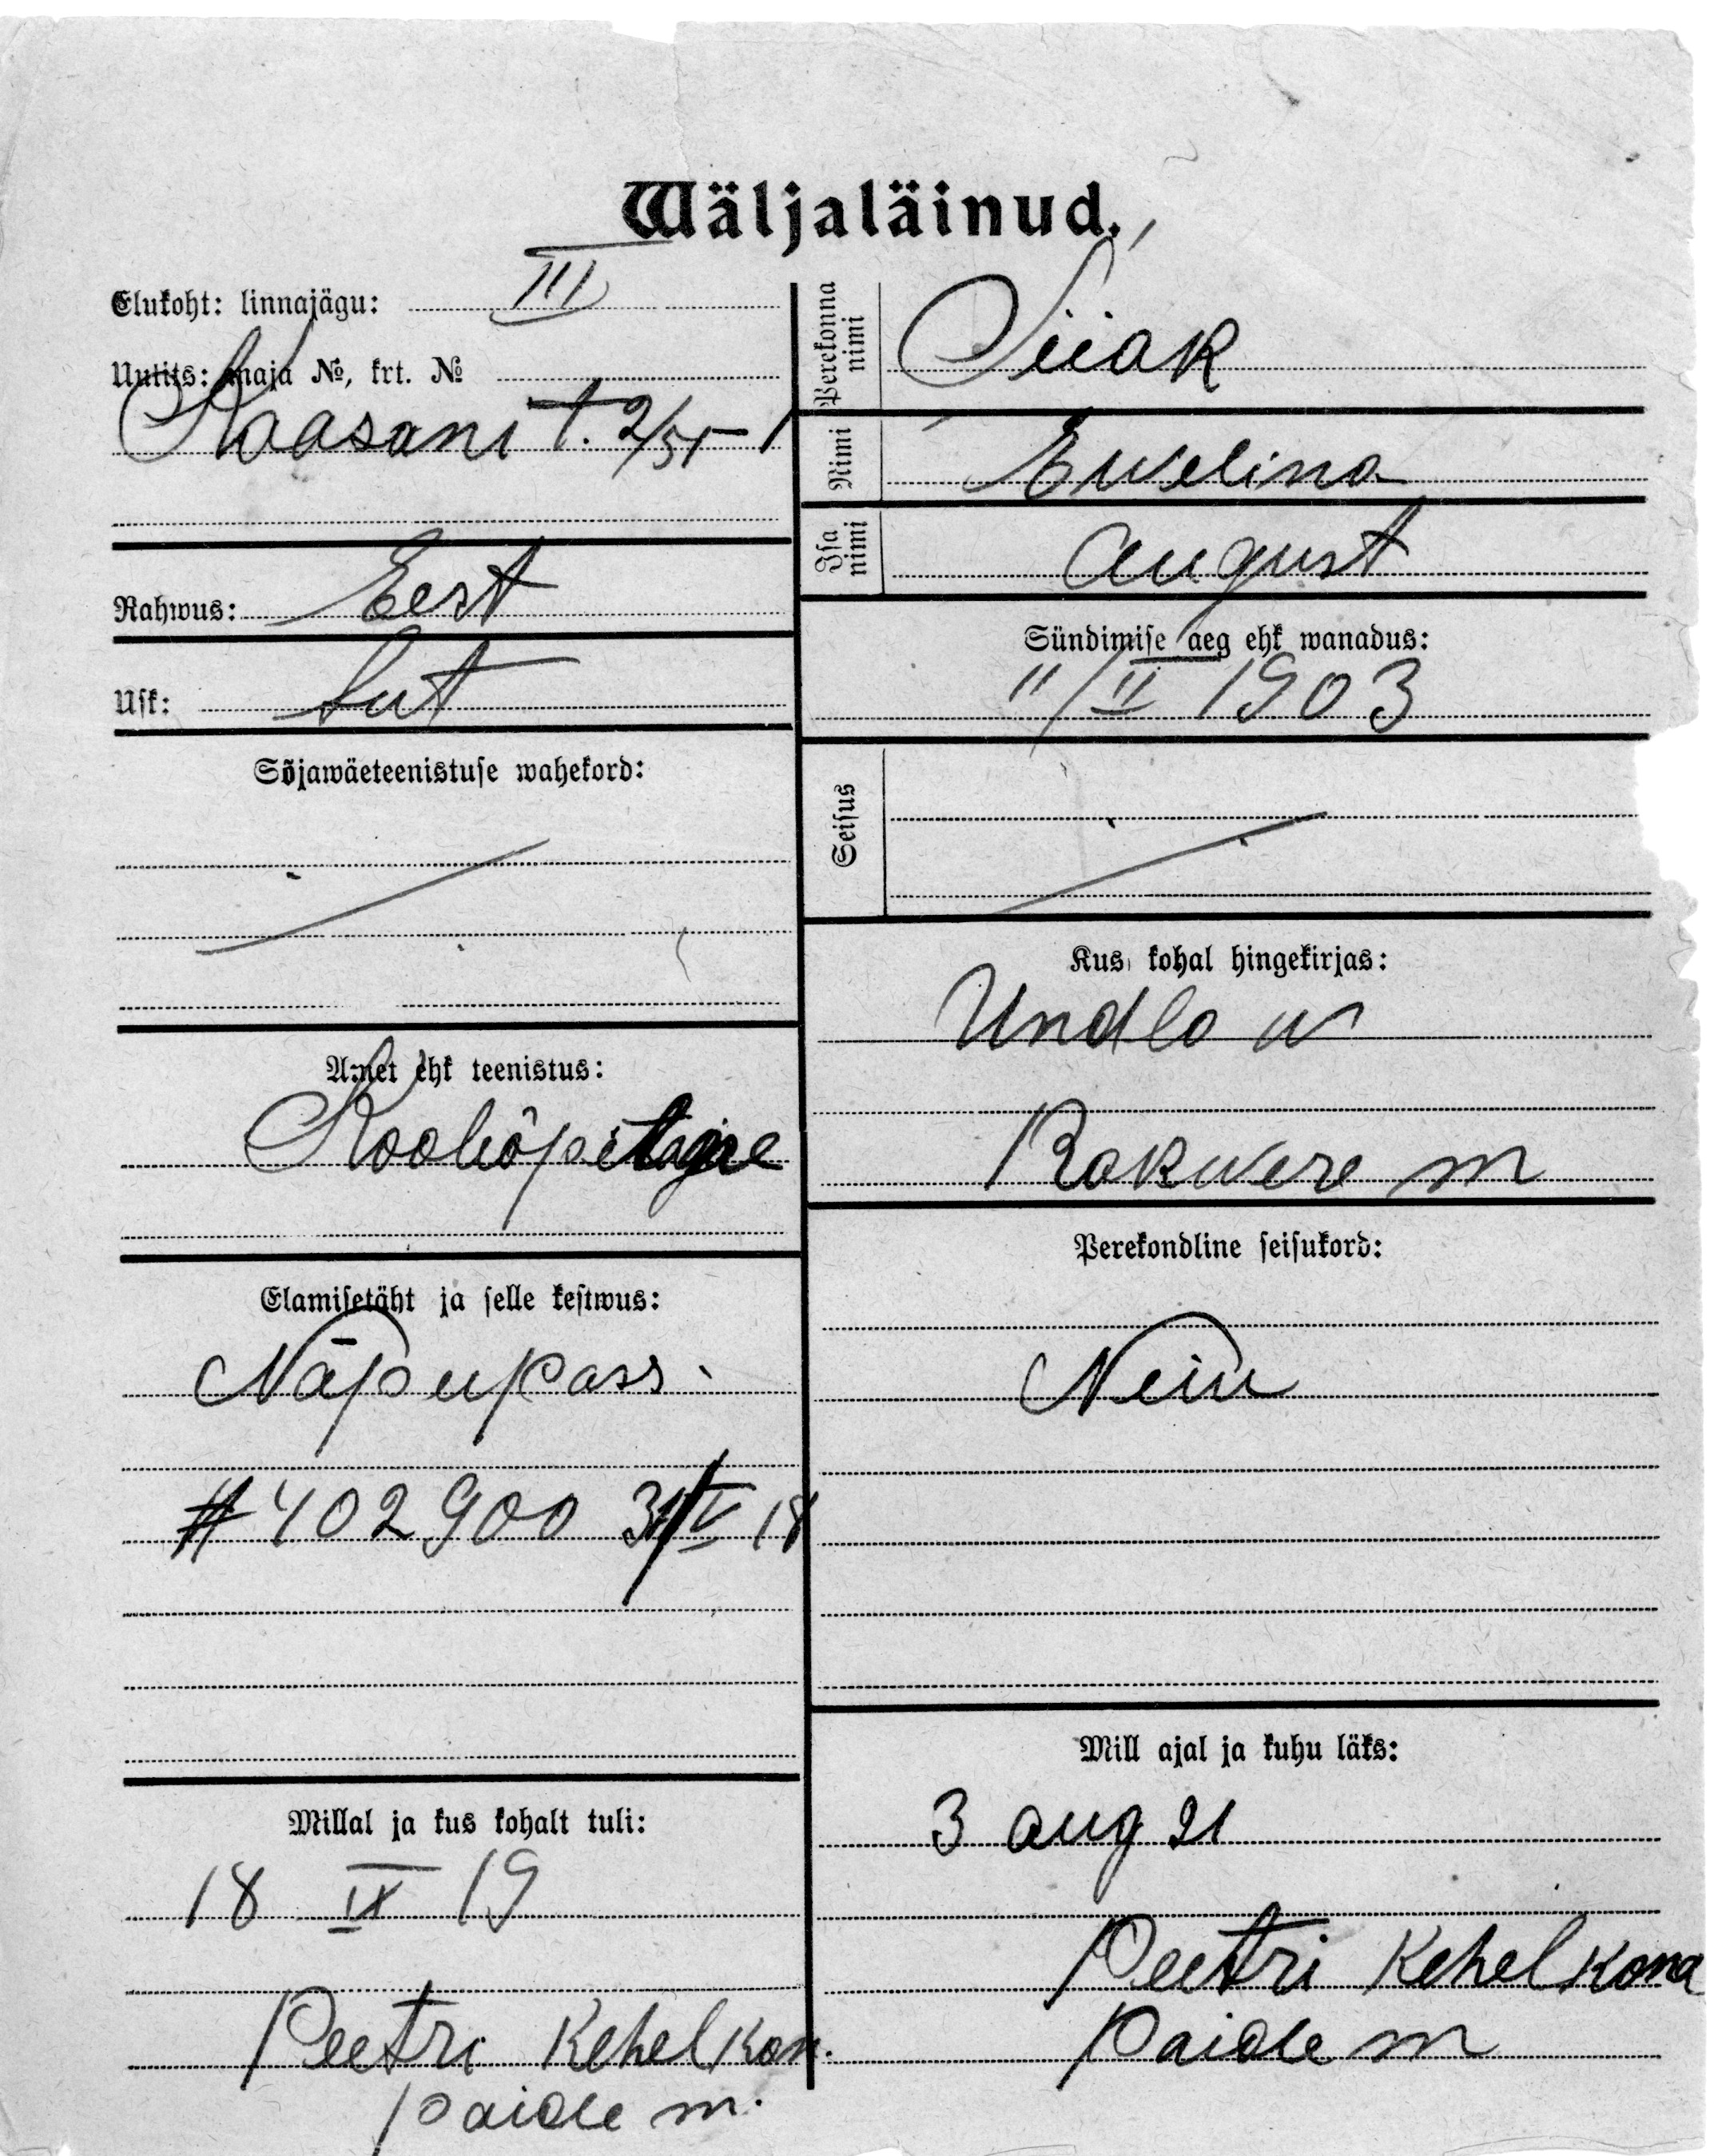 Wäljaläinud.
Elukoht: linnajägu: III
Uulits: maja №, krt. №
Kaasani t. 2/51-1
Rahwus: Eest
Usk: Lut
Sõjawäeteenistuse wahekord:
Amet ehk teenistus:
Kooliõpetagae
Elamisetäht ja selle kestwus:
Näpupass.
# 402900 31/V 18
Millal ja kus kohalt tuli:
18 IX 19
Peetri Kehelkon.
Paide m.
Perekonna nimi
Siiak
Nimi
Ewelina
Isa nimi
August
Sündimise aeg ehk wanadus:
11/II 1903
Seisus
Kus kohal hingekirjas:
Undla w
Rakwere m
Perekondline seisukord:
Neiu
Mill ajal ja kuhu läks:
3 aug 21
Peetri Kehelkona
Paide m